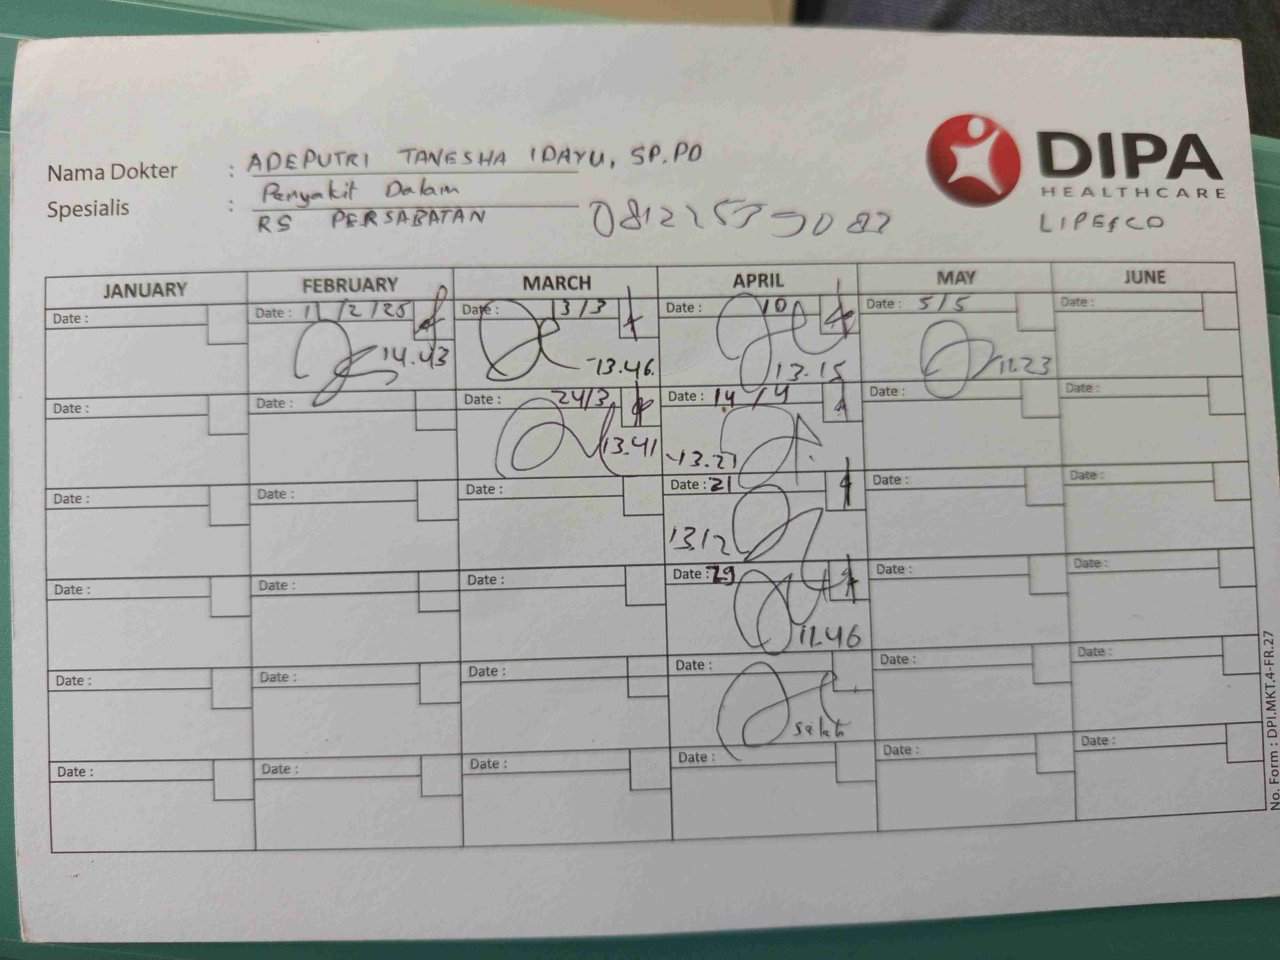 DIPA
HEALTHCARE
LIPESCO
Nama Dokter : ADEPUTRI TANESHA IDAYU, SP.PD
Spesialis : Penyakit Dalam
RS PERSABATAN
JANUARY FEBRUARY MARCH APRIL MAY JUNE
Date : Date : 11/2/25 Date : 13/3 Date : 10 Date : 5/5 Date :
14.43 13.46 13.15 11.23
Date : Date : Date : 24/3 Date : 14/4 Date : Date :
13.41 13.27
Date : Date : Date : Date : 21 Date : Date :
13.12
Date : Date : Date : Date : 29 Date : Date :
11.46
Date : Date : Date : Date : Date : Date :
Date : Date : Date : Date : Date : Date :
No. Form : DPI.MKT.4-FR.27